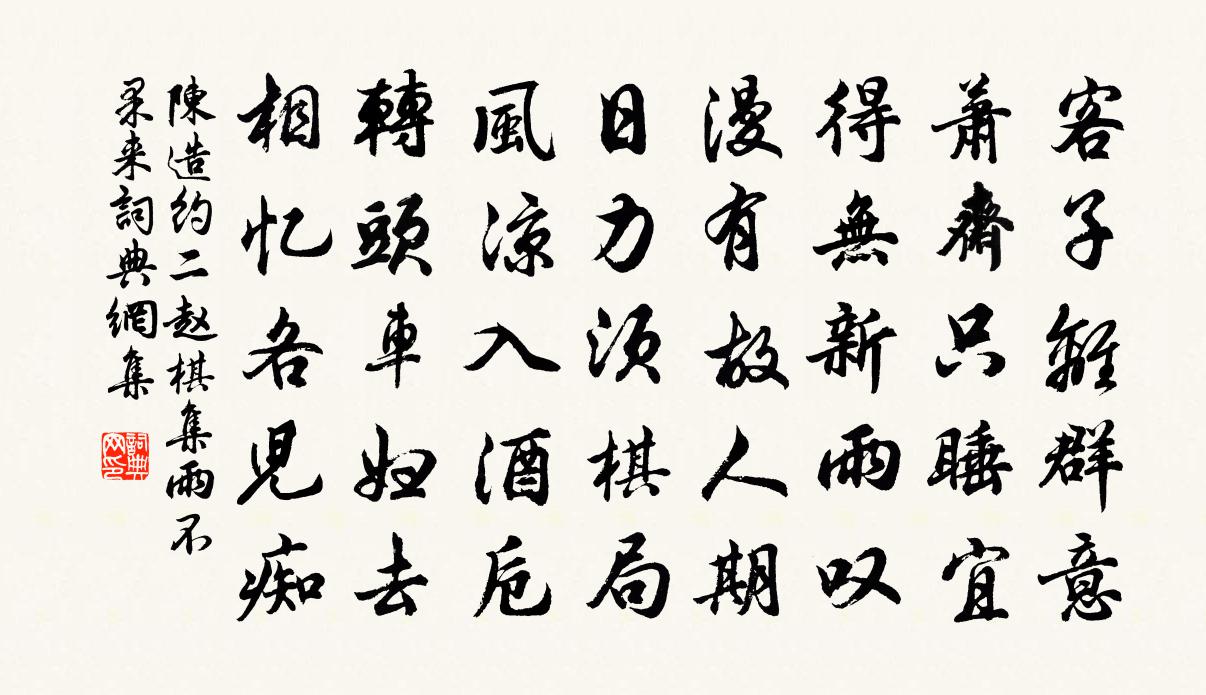 客子離群意
蕭齋只睡宜
得無新雨叹
漫有故人期
日力須棋局
風涼入酒卮
轉頭車妇去
相忆各兒痴
陳造约二赵棋集雨不
果来詞典網集
詞典网印